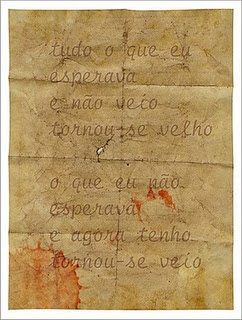 tudo o que eu
esperava
e não veio
tornou-se velho

o que eu não
esperava
e agora tenho
tornou-se veio